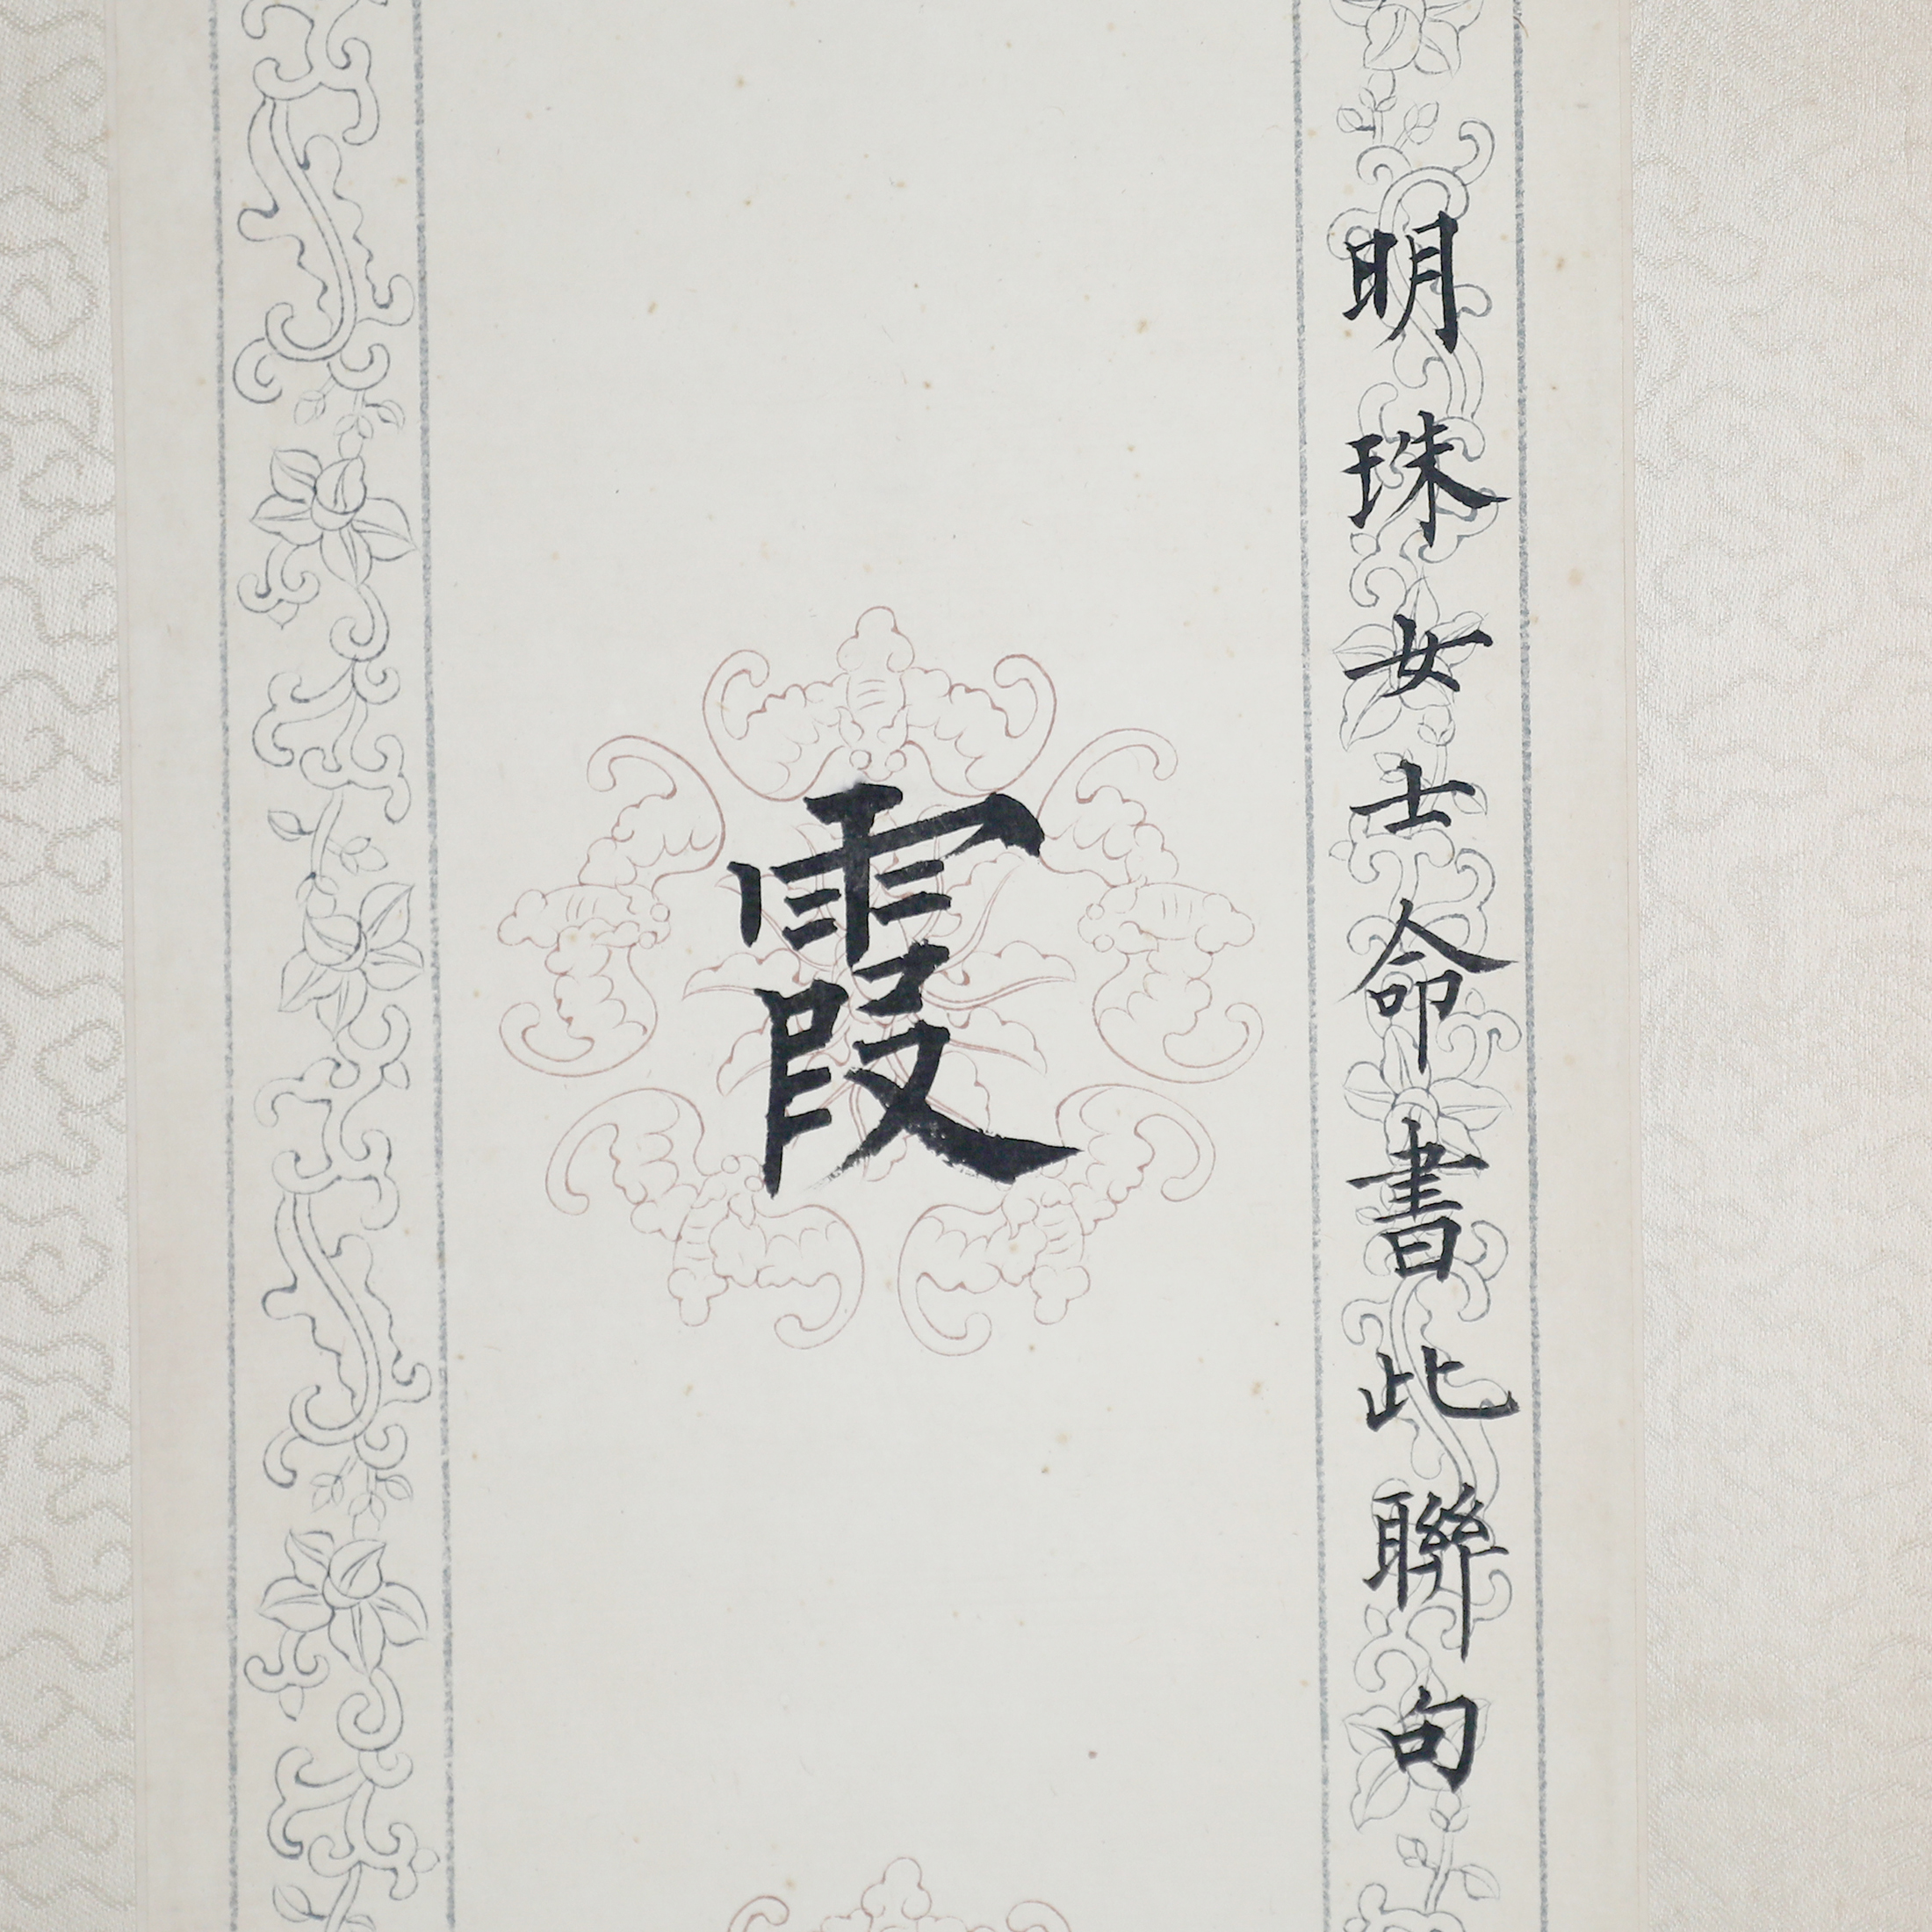 明珠女士命書此聯句
霞